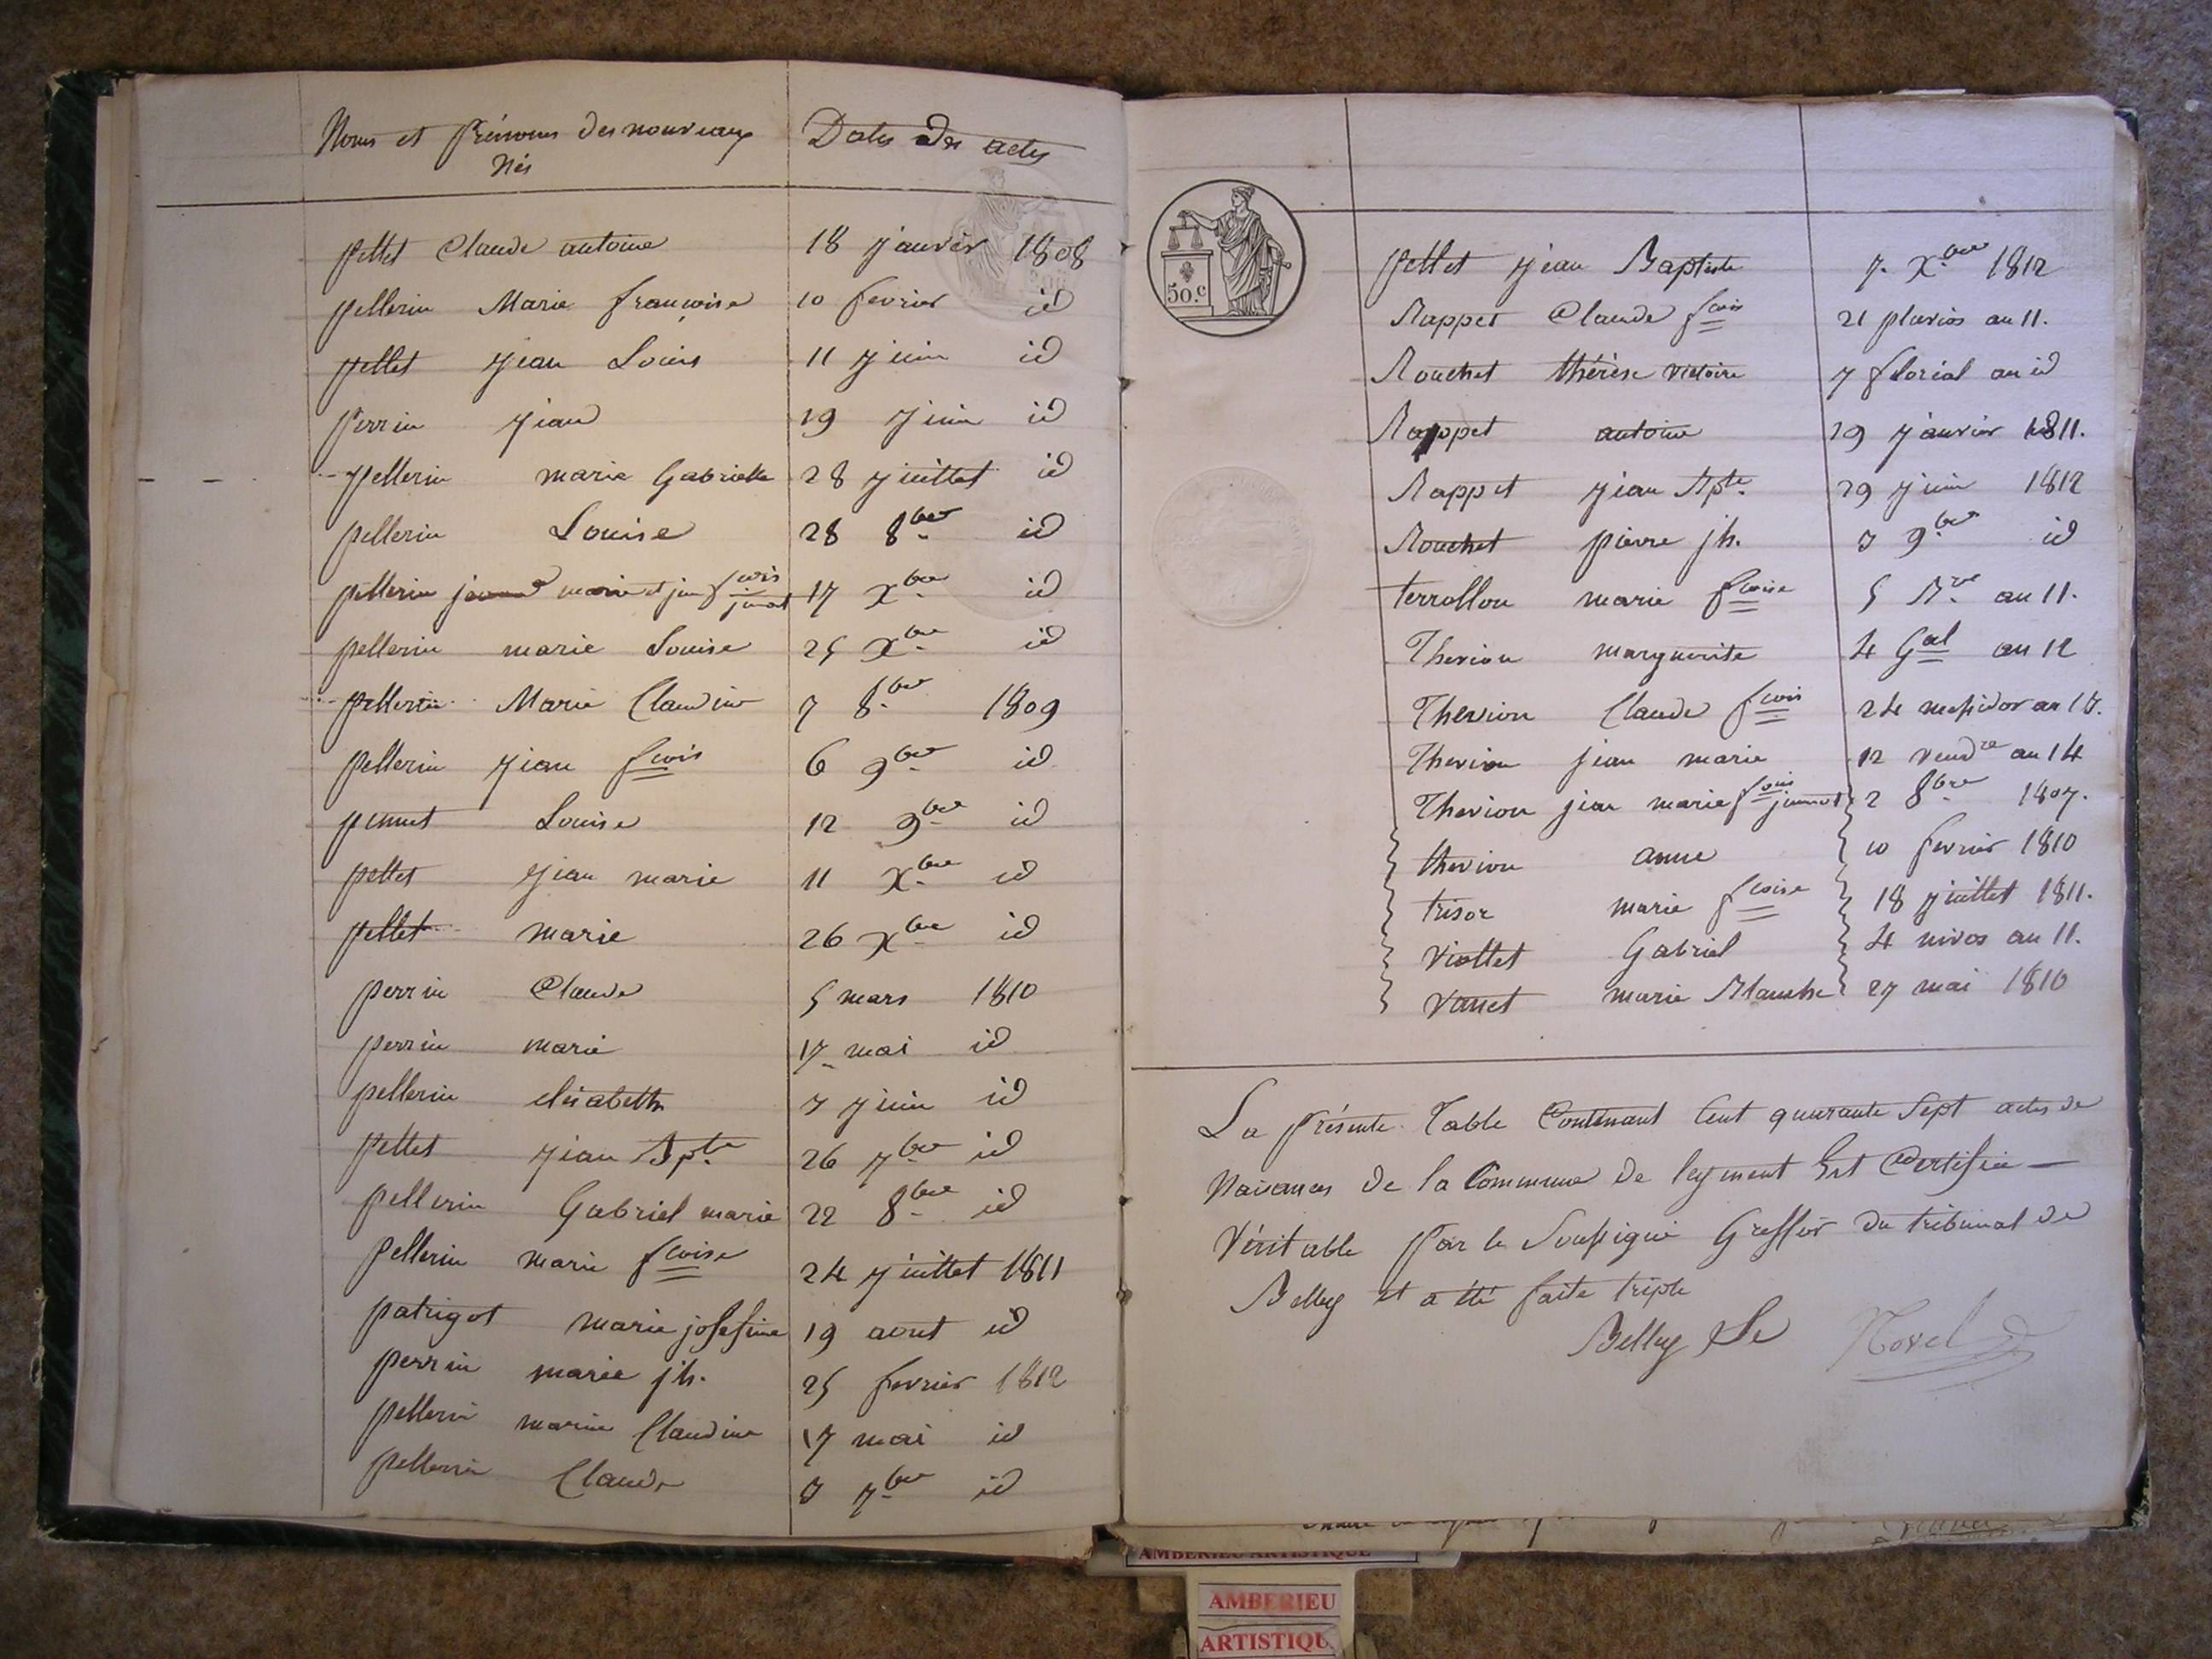 Noms et Prénoms des nouveaux
Nés
Dates des actes
pellet Claude antoine 18 janvier 1808
pellerin Marie françoise 10 fevrier id
pellet jean Louis 11 juin id
perrin jean 19 juin id
pellerin marie Gabrielle 28 juillet id
pellerin Louise 28 8bre id
pellerin marie et jean fcois jumot 17 Xbre id
pellerin marie Louise 25 Xbre id
pellerin Marie Claudine 7 8bre 1809
pellerin jean fcois 6 9bre id
Louise 12 9bre id
pellet jean marie 11 Xbre id
pellet marie 26 Xbre id
perrin Claude 5 mars 1810
perrin marie 17 mai id
pellerin elisabeth 3 juin id
pellet jean Bpte 26 7bre id
pellerin Gabriel marie 22 8bre id
pellerin marie fcoise 24 juillet 1811
patrigot marie josefine 19 aout id
perrin marie jh. 25 fevrier 1812
pellerin marie Claudine 17 mai id
pellerin Claude 3 7bre id
50.c
pellet jean Baptiste 7. Xbre 1812
Rappet Claude fcois 21 pluvios an 11.
Rouchet thérèse victoire 7 florial an id
Rappet antoine 29 janvier 1811.
Rappet jean Bpte. 29 juin 1812
Rouchet pierre jh. 3 9bre id
terrollon marie fcoise 5 Bre an 11.
Thevion marguerite 4 Gal an 12
Thevion Claude fcois 24 messidor an 13.
Thevion jean marie 12 vendre an 14
Thevion jean marie fcois jumot 2 8bre 1807.
thevion anne 10 fevrier 1810
trisor marie fcoise 18 juillet 1811.
viollet Gabriel 4 nivos an 11.
marie Blanche 27 mai 1810
La présente Table Contenant Cent quarante Sept actes de
Naisances de la Commune de leyment Est Certifiée
Véritable par le Soussigné Greffier du tribunal de
Belley et a été faite triple
Belley le
AMBERIEU ARTISTIQUE
AMBERIEU
ARTISTIQU